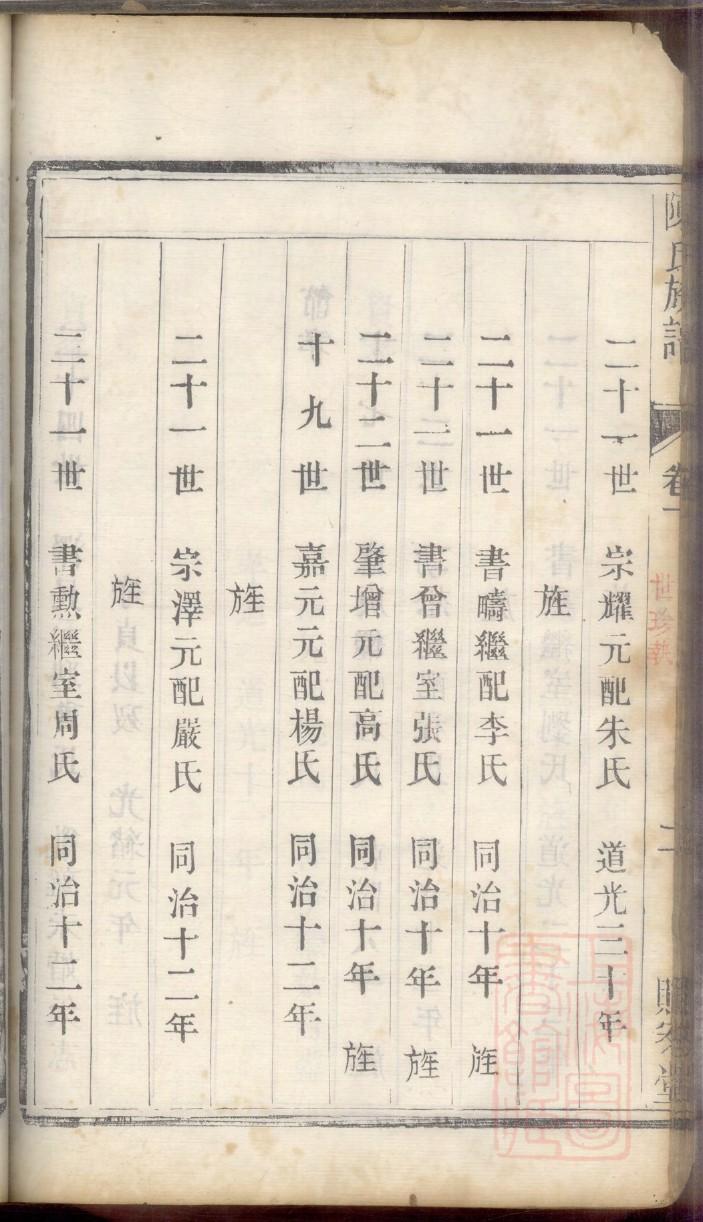 陳氏族譜 卷一 二
二十一世 宗耀元配朱氏 道光三十年
旌
二十一世 書疇繼配李氏 同治十年 旌
二十二世 書曾繼室張氏 同治十年 旌
二十二世 肇增元配高氏 同治十年 旌
十九世 嘉元元配楊氏 同治十二年
旌
二十一世 宗澤元配嚴氏 同治十二年
旌
二十一世 書勳繼室周氏 同治十二年